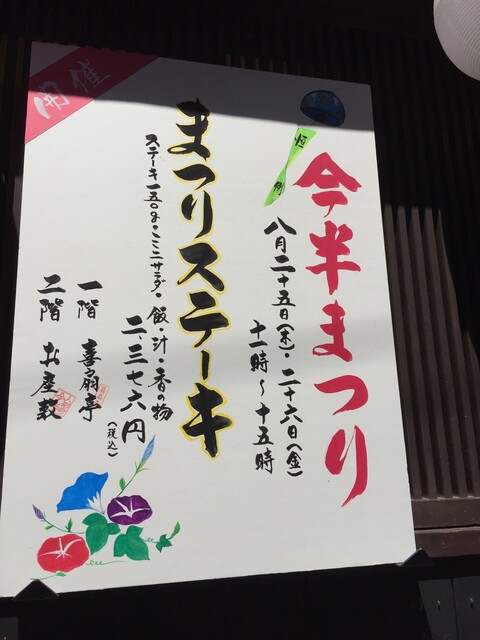 開催
恒例
今半まつり
八月二十五日(木)・二十六日(金)
十一時〜十五時
まつりステーキ
ステーキ一五〇g・ミニサラダ・飯・汁・香の物
二、三七六円
(税込)
一階 喜扇亭
二階 お座敷